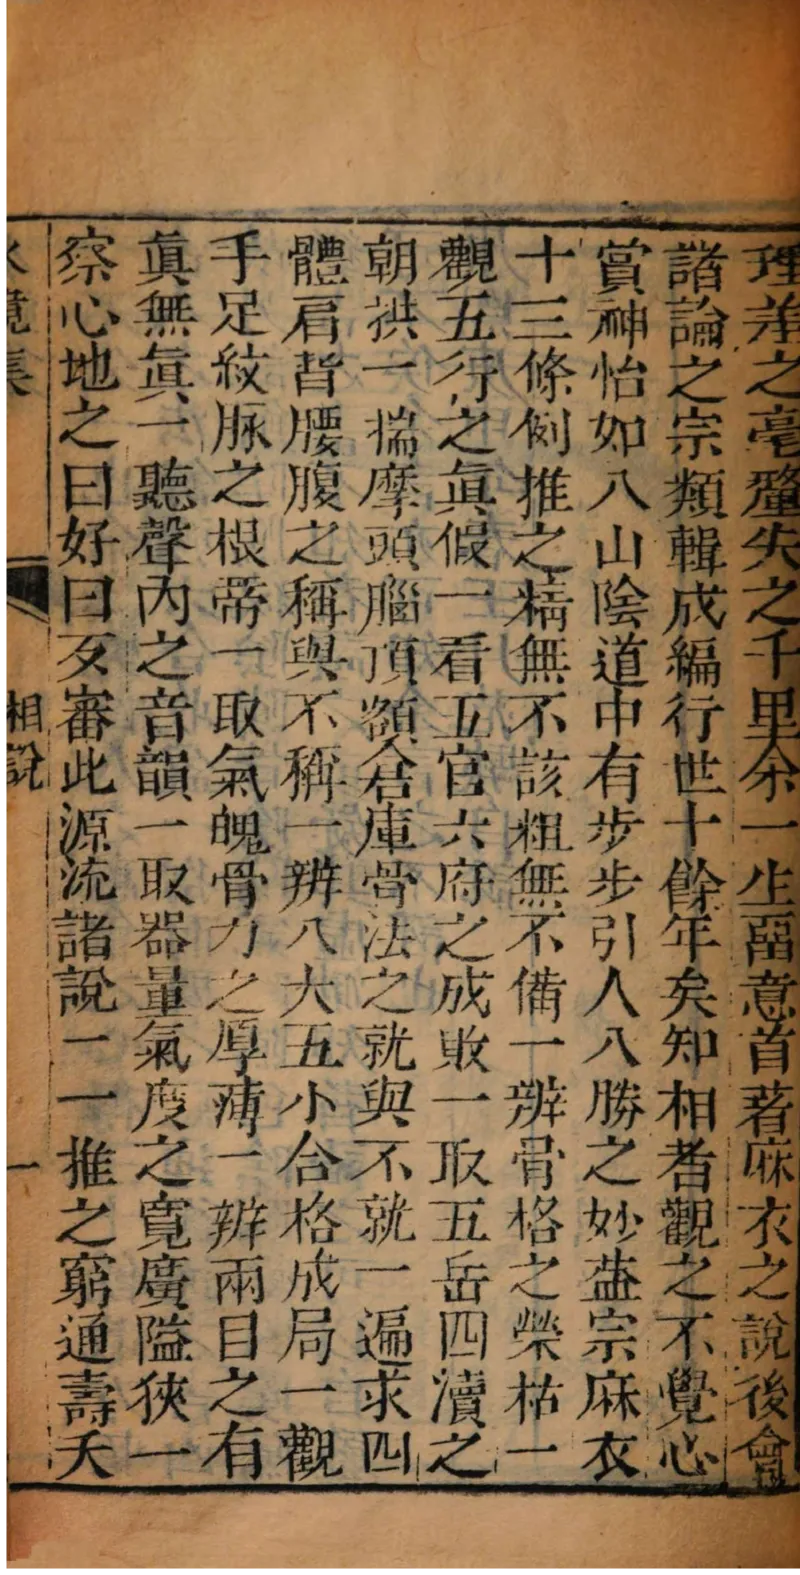 理差之毫釐失之千里余一生畱意首著麻衣之說後會
諸論之宗類輯成編行世十餘年矣知相者觀之不覺心
賞神怡如入山陰道中有步步引人入勝之妙葢宗麻衣
十三條例推之精無不該粗無不備一辨骨格之榮枯一
觀五行之眞假一看五官六府之成敗一取五岳四瀆之
朝拱一揣摩頭腦頂額倉庫骨法之就與不就一遍求四
體肩背腰腹之稱與不稱一辨八大五小合格成局一觀
手足紋脉之根蒂一取氣魄骨力之厚薄一辨兩目之有
眞無眞一聽聲內之音韻一取器量氣度之寬廣隘狹一
察心地之曰好曰歹審此源流諸說一一推之窮通壽夭
水鏡集
相說
一